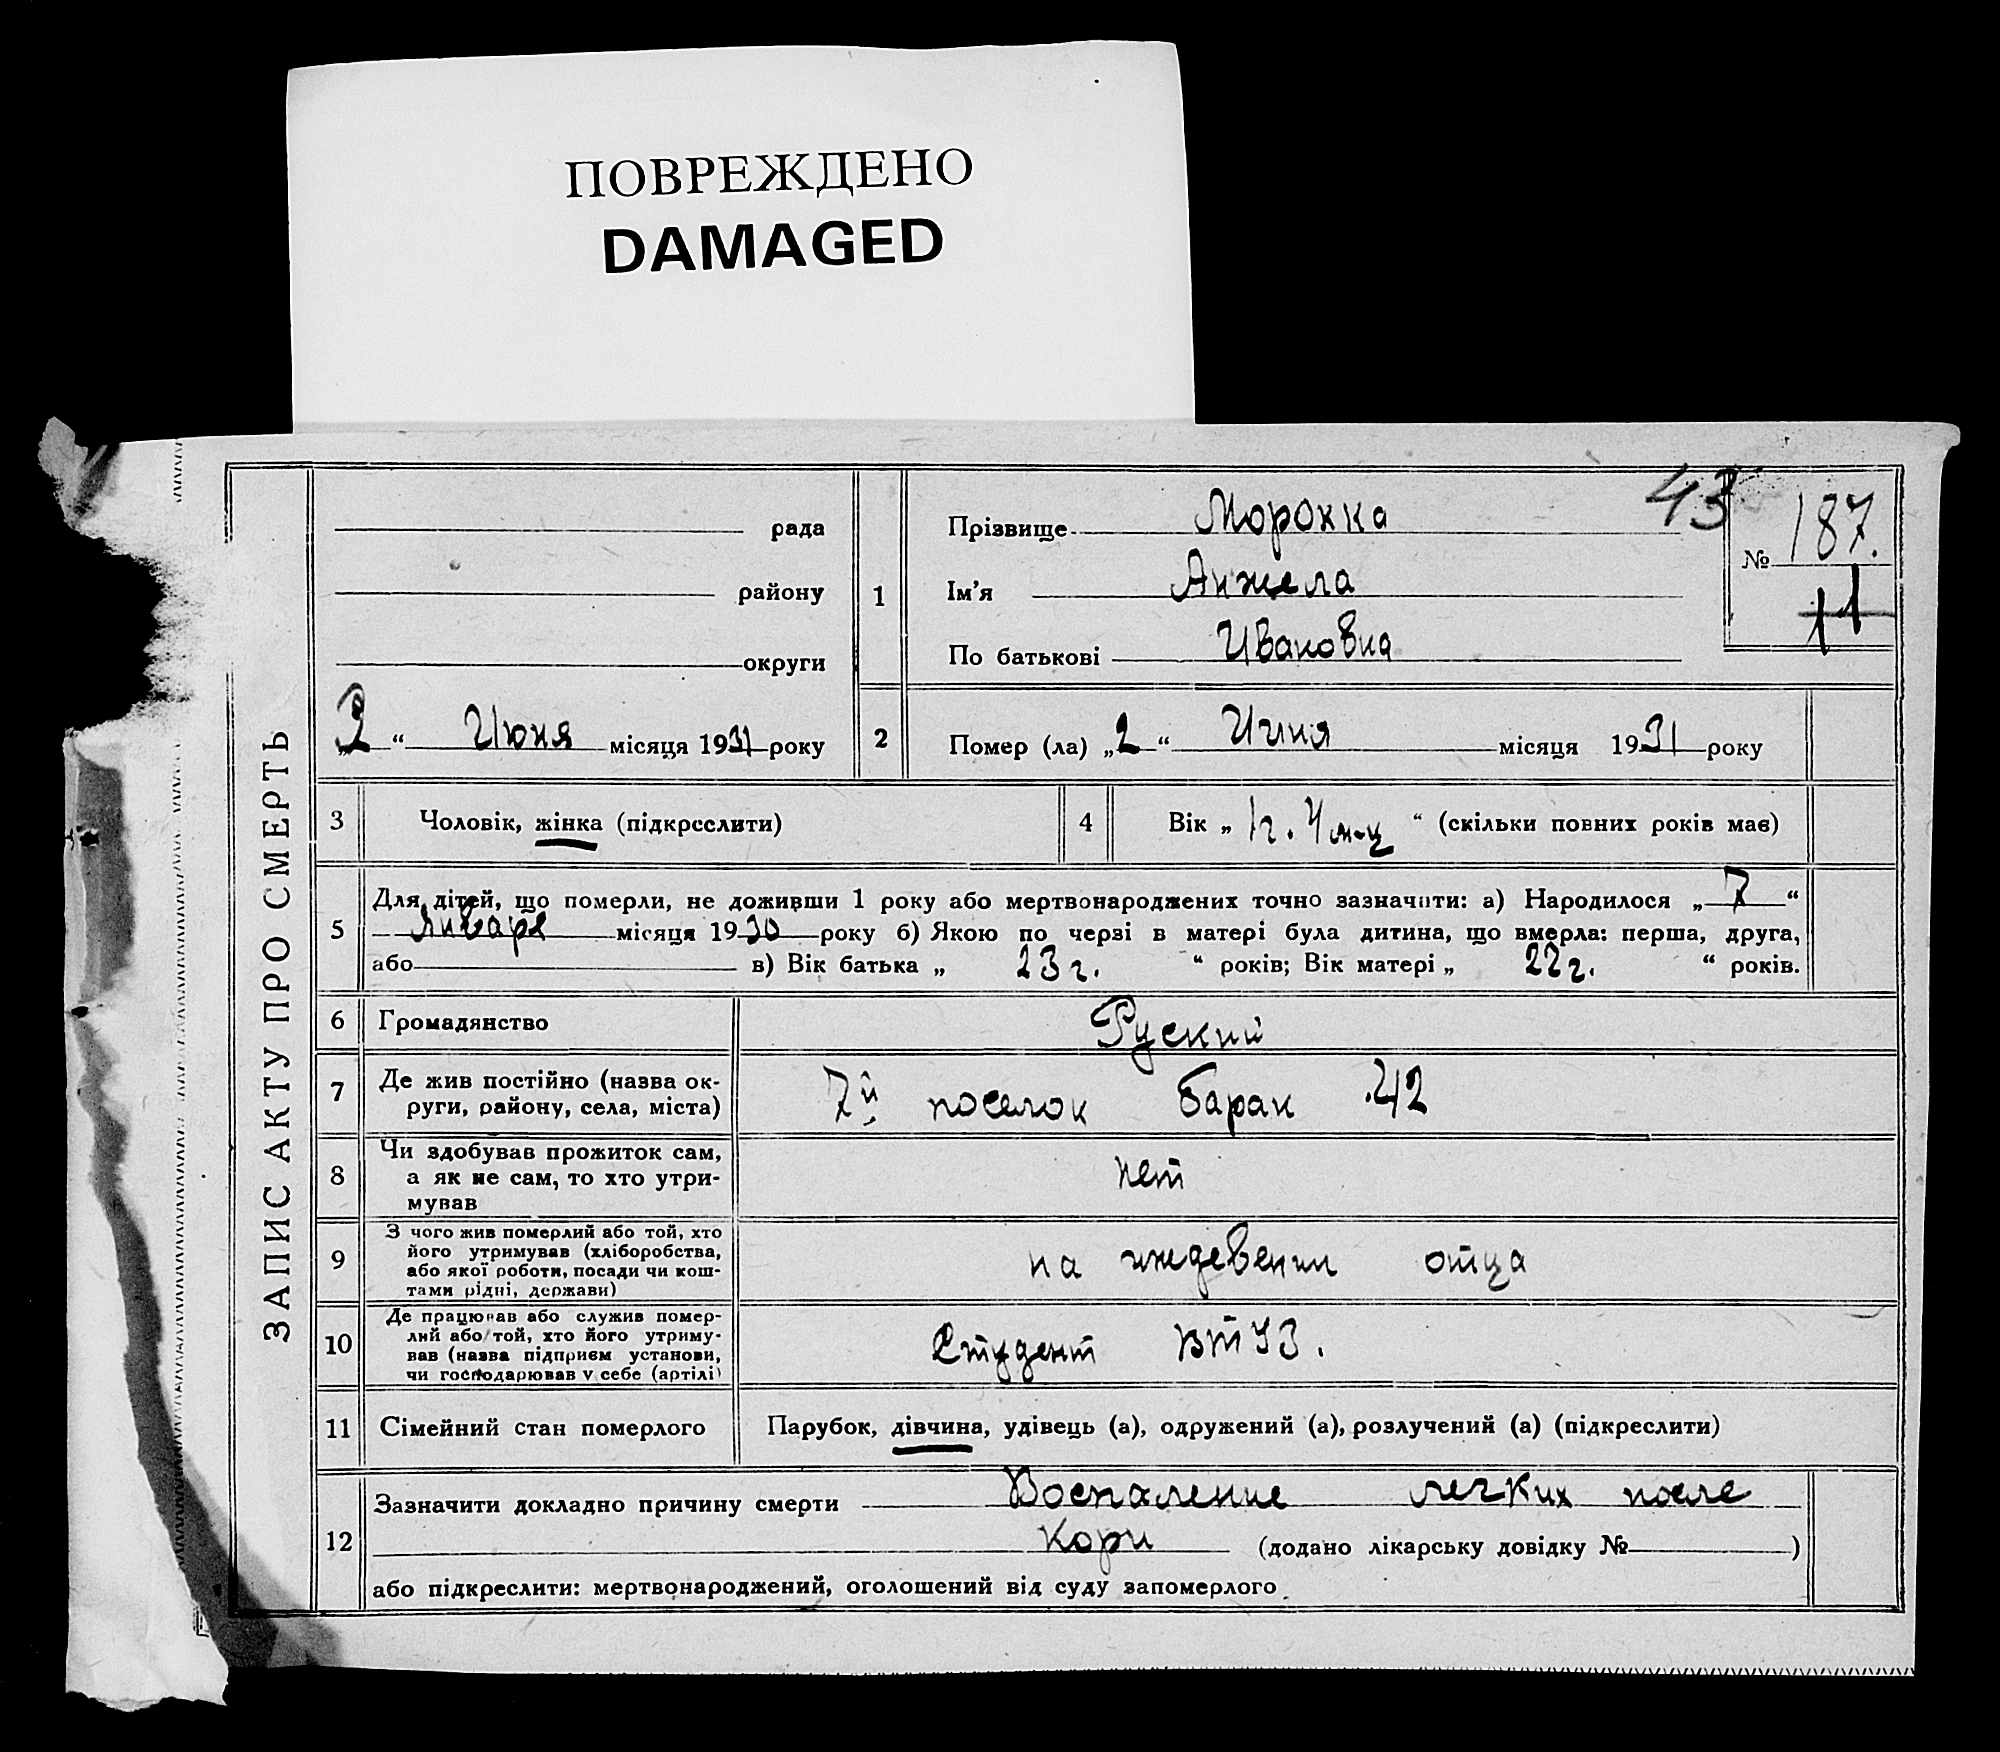 ПОВРЕЖДЕНО
DAMAGED
ЗАПИС АКТУ ПРО СМЕРТЬ
рада
району
округи
„2“ Июня місяця 1931 року
1
Прізвище Морокка
Ім'я Анжела
По батькові Ивановна
43
№ 187.
11
2
Помер (ла) „2“ Июня місяця 1931 року
3 Чоловік, жінка (підкреслити)
4 Вік „ 1 г. 4 м-ц “ (скільки повних років має)
5 Для дітей, що померли, не доживши 1 року або мертвонароджених точно зазначити: а) Народилося „7“
Января місяця 1930 року б) Якою по черзі в матері була дитина, що вмерла: перша, друга,
або в) Вік батька „ 23 г. “ років; Вік матері „ 22 г. “ років.
6 Громадянство Руский
7 Де жив постійно (назва ок-
руги, району, села, міста) 7й поселок барак 42
8 Чи здобував прожиток сам,
а як не сам, то хто утри-
мував нет
9 З чого жив померлий або той, хто
його утримував (хліборобства,
або якої роботи, посади чи кош-
тами рідні, держави) на иждевении отца
10 Де працював або служив помер-
лий або той, хто його утриму-
вав (назва підприєм установи,
чи господарював у себе (артілі) Студент ВТУЗ.
11 Сімейний стан померлого Парубок, дівчина, удівець (а), одружений (а), розлучений (а) (підкреслити)
12 Зазначити докладно причину смерти Воспаление легких после
кори (додано лікарську довідку № )
або підкреслити: мертвонароджений, оголошений від суду запомерлого